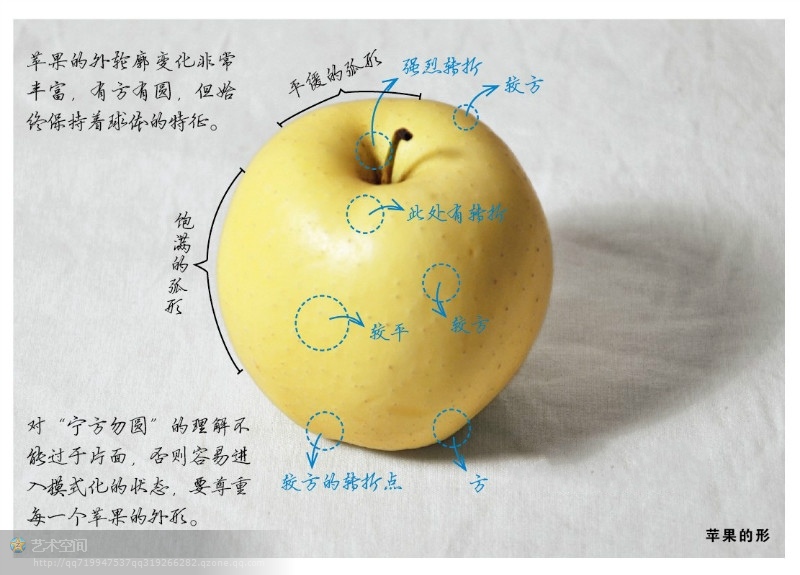 苹果的外轮廓变化非常
丰富，有方有圆，但始
终保持着球体的特征。
平缓的弧形
强烈转折
较方
饱满的弧形
此处有转折
较平
较方
对“宁方勿圆”的理解不
能过于片面，否则容易进
入模式化的状态，要尊重
每一个苹果的外形。
较方的转折点
方
苹果的形
艺术空间
http://qq719947537qq319266282.qzone.qq.com